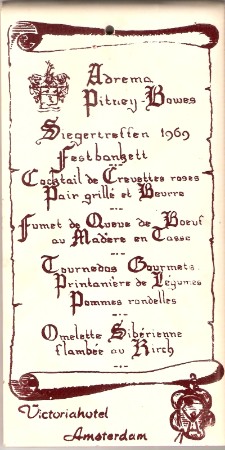 Adrema
Pitney-Bowes
Siegertreffen 1969
Festbankett
Cocktail de Crevettes roses
Pair grillé et Beurre
Fumet de Queue de Boeuf
au Madère en Tasse
Tournedos Gourmets
Printanière de Légumes
Pommes rondelles
Omelette Sibérienne
flambée au Kirch
Victoriahotel
Amsterdam